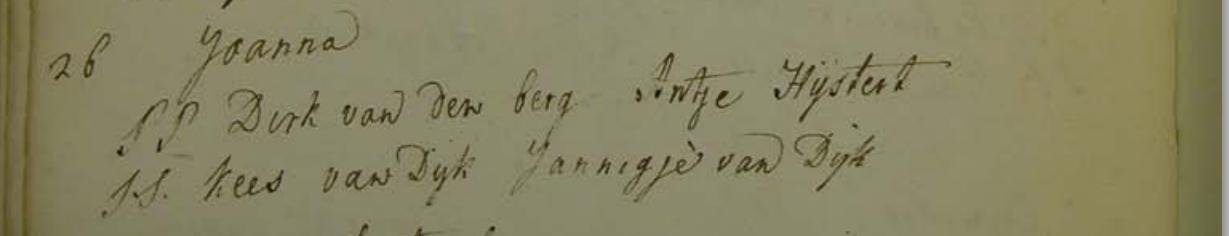 26 Joanna
PP Dirk van den berg Antje Hÿstert
SS. Kees van Dijk Jannigje van Dijk